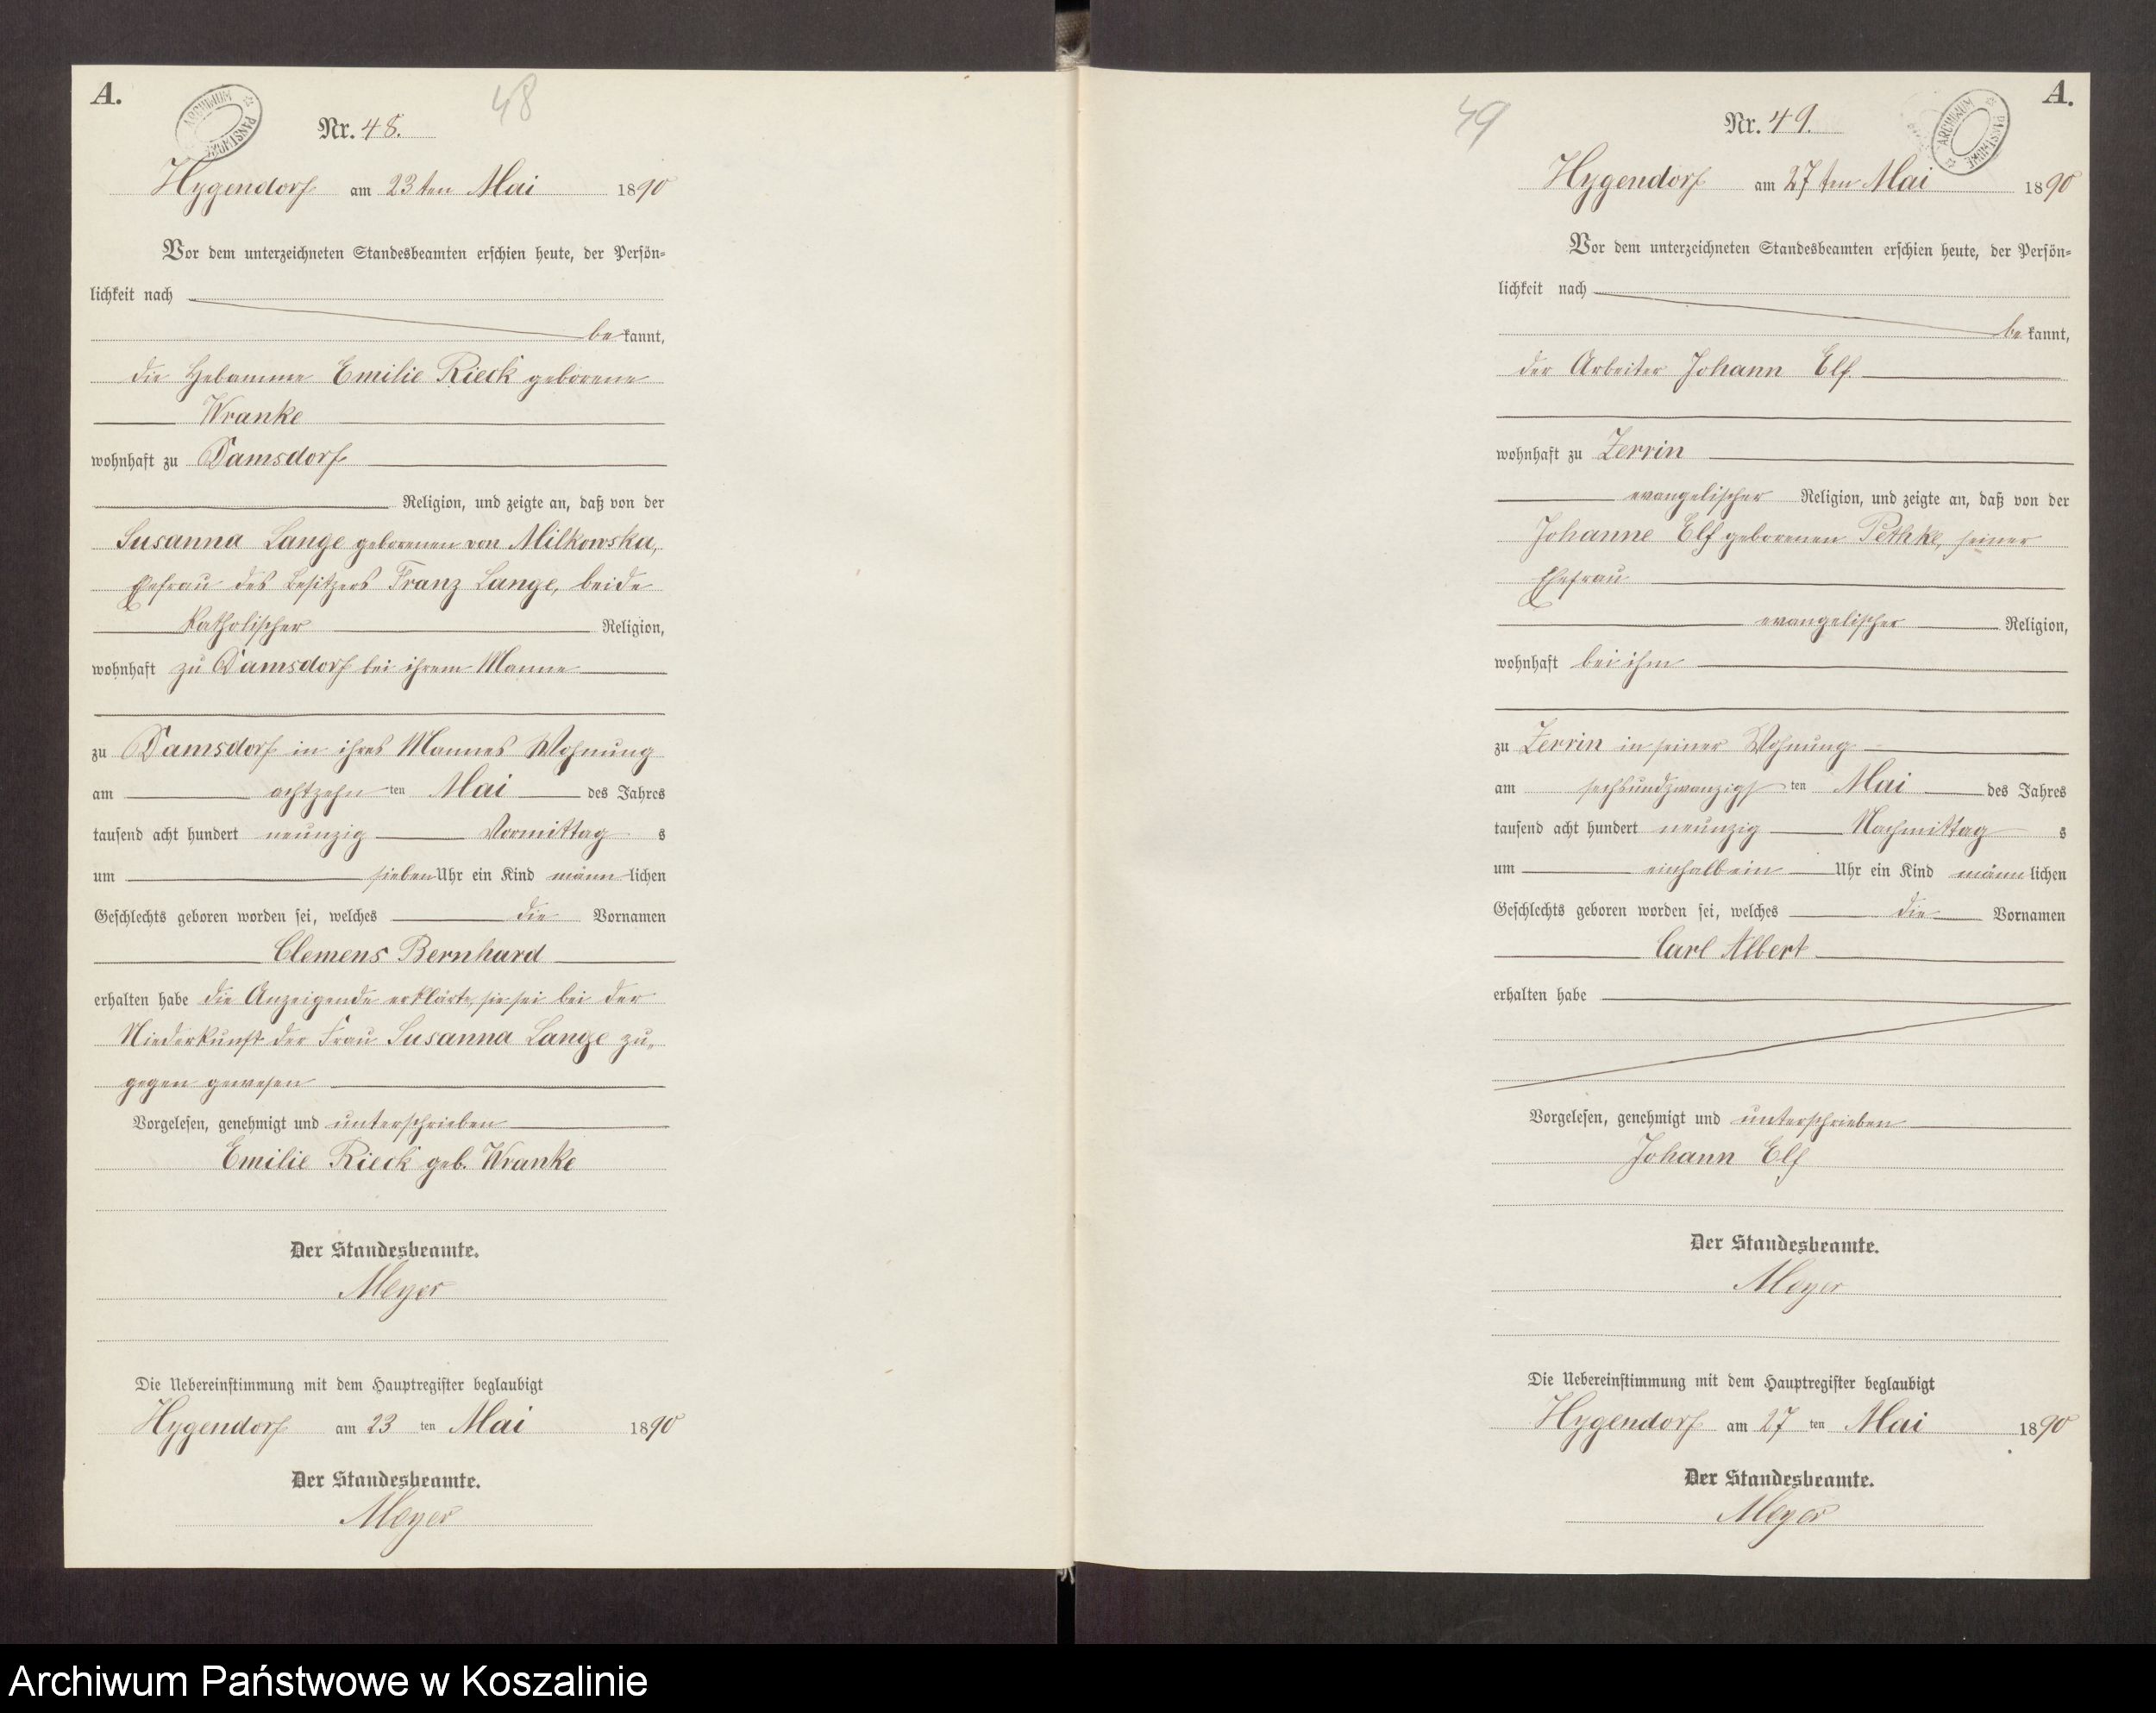 A.
ARCHIWUM PAŃSTWOWE
48
Nr. 48.
Hygendorf am 23ten Mai 1890
Vor dem unterzeichneten Standesbeamten erschien heute, der Persön-
lichkeit nach
bekannt,
die Hebamme Emilie Rieck geborene
Wranke
wohnhaft zu Damsdorf
Religion, und zeigte an, daß von der
Susanna Lange geborenen von Milkowska,
Ehefrau des Besitzers Franz Lange, beide
katholischer Religion,
wohnhaft zu Damsdorf bei ihrem Manne
zu Damsdorf in ihres Mannes Wohnung
am achtzehn ten Mai des Jahres
tausend acht hundert neunzig Vormittag s
um sieben Uhr ein Kind männlichen
Geschlechts geboren worden sei, welches die Vornamen
Clemens Bernhard
erhalten habe die Anzeigende erklärte, sie sei bei der
Niederkunft der Frau Susanna Lange zu-
gegen gewesen
Vorgelesen, genehmigt und unterschrieben
Emilie Rieck geb. Wranke
Der Standesbeamte.
Meyer
Die Uebereinstimmung mit dem Hauptregister beglaubigt
Hygendorf am 23 ten Mai 1890
Der Standesbeamte.
Meyer
A.
ARCHIWUM PAŃSTWOWE
49
Nr. 49.
Hygendorf am 27ten Mai 1890
Vor dem unterzeichneten Standesbeamten erschien heute, der Persön-
lichkeit nach
bekannt,
der Arbeiter Johann Elf
wohnhaft zu Zerrin
evangelischer Religion, und zeigte an, daß von der
Johanne Elf geborenen Pethke, seiner
Ehefrau
evangelischer Religion,
wohnhaft bei ihm
zu Zerrin in seiner Wohnung
am sechsundzwanzigs ten Mai des Jahres
tausend acht hundert neunzig Nachmittag s
um einhalb ein Uhr ein Kind männlichen
Geschlechts geboren worden sei, welches die Vornamen
Carl Albert
erhalten habe
Vorgelesen, genehmigt und unterschrieben
Johann Elf
Der Standesbeamte.
Meyer
Die Uebereinstimmung mit dem Hauptregister beglaubigt
Hygendorf am 27 ten Mai 1890
Der Standesbeamte.
Meyer
Archiwum Państwowe w Koszalinie